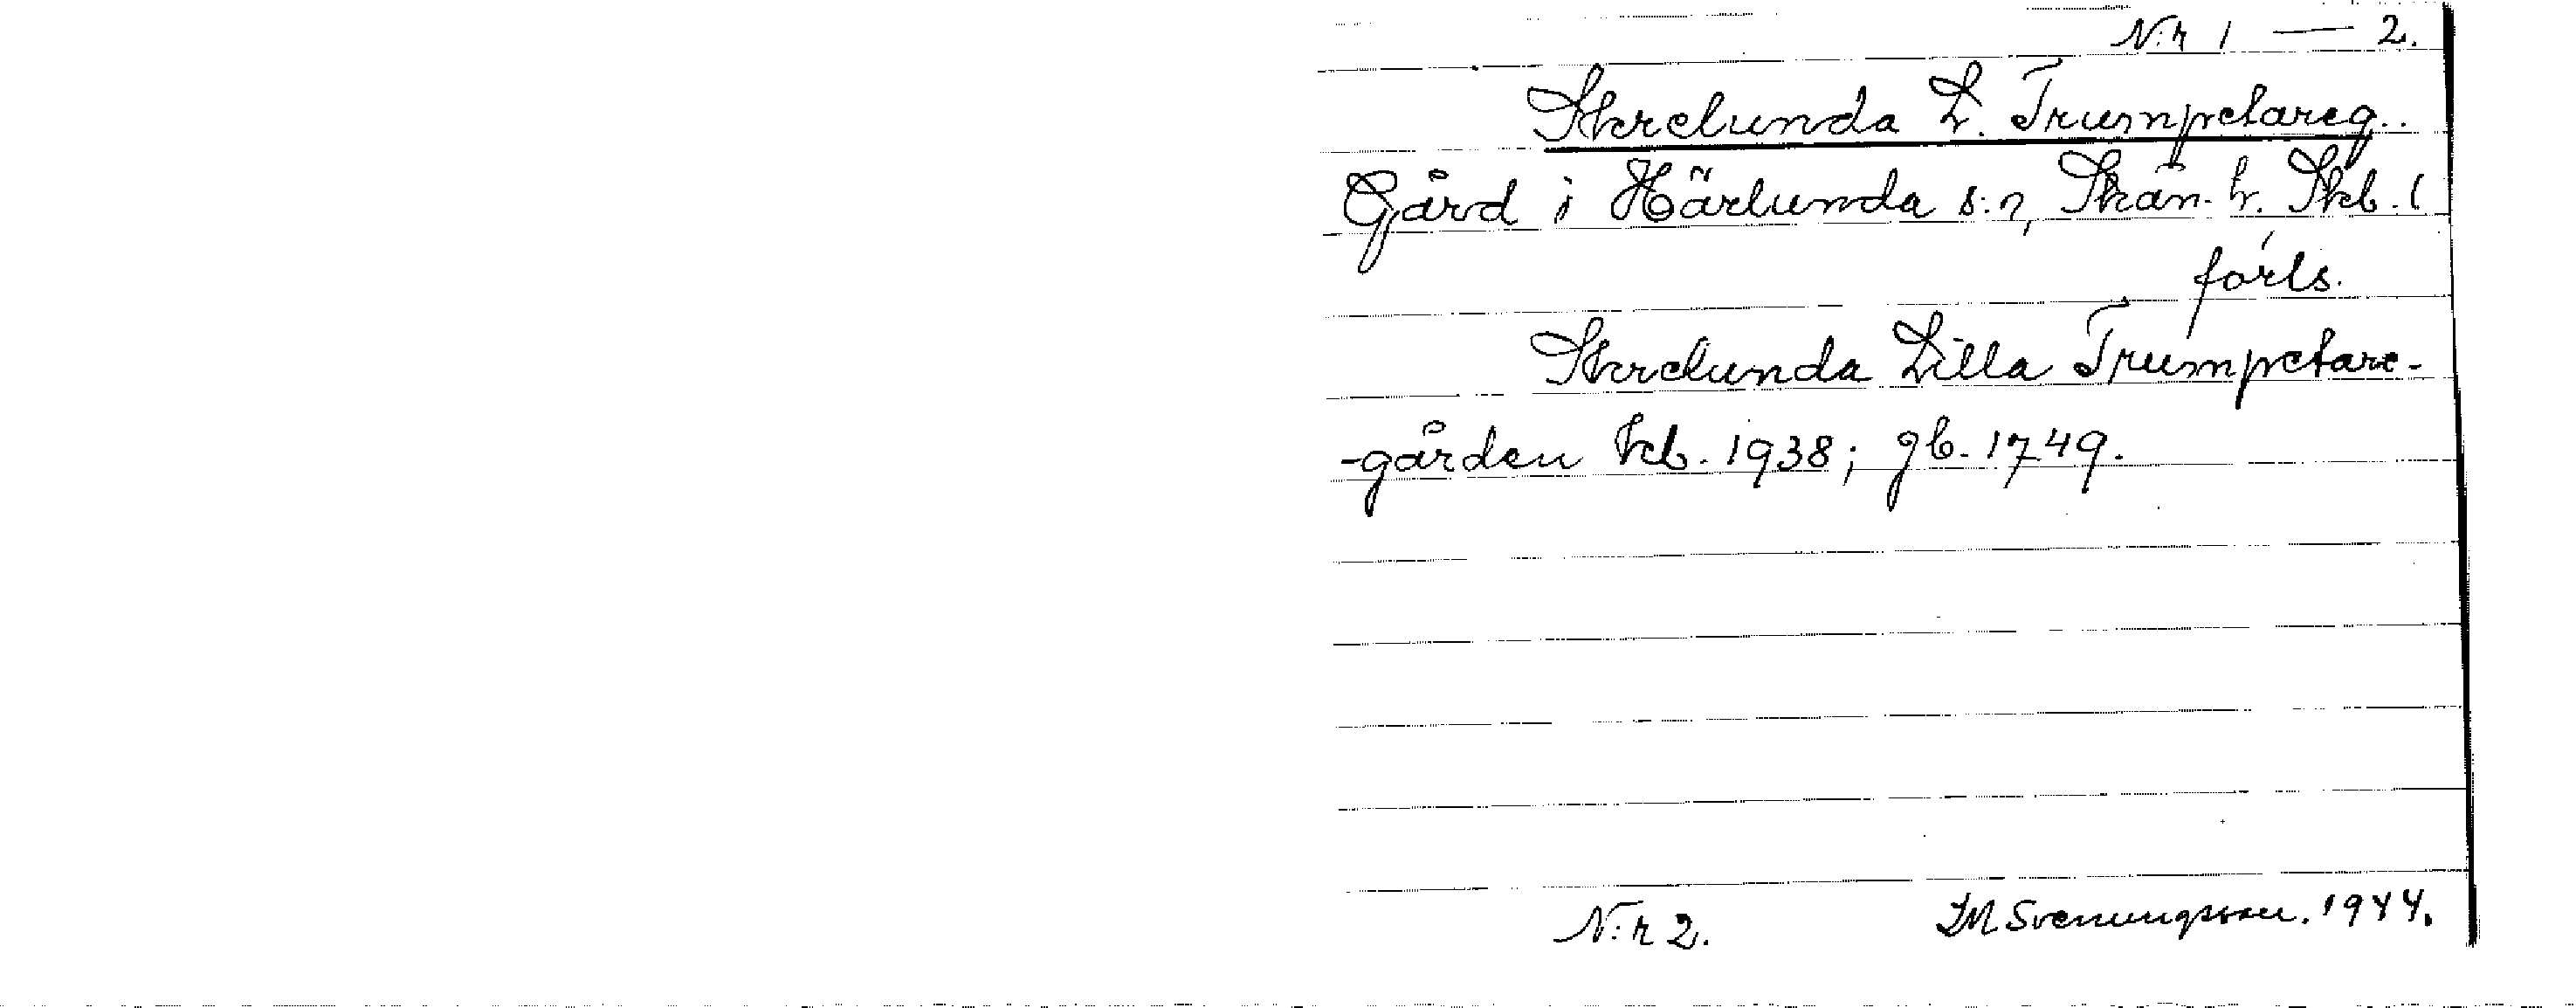 N:r 1 — 2.
Skrelunda L. Trumpetareg..
Gård i Härlunda s:n, Skån. h. Skb. l
forts.
Skrelunda Lilla Trumpetare-
-gården kb. 1938; gb. 1749.
N:r 2. IM Svenungsson. 1944.